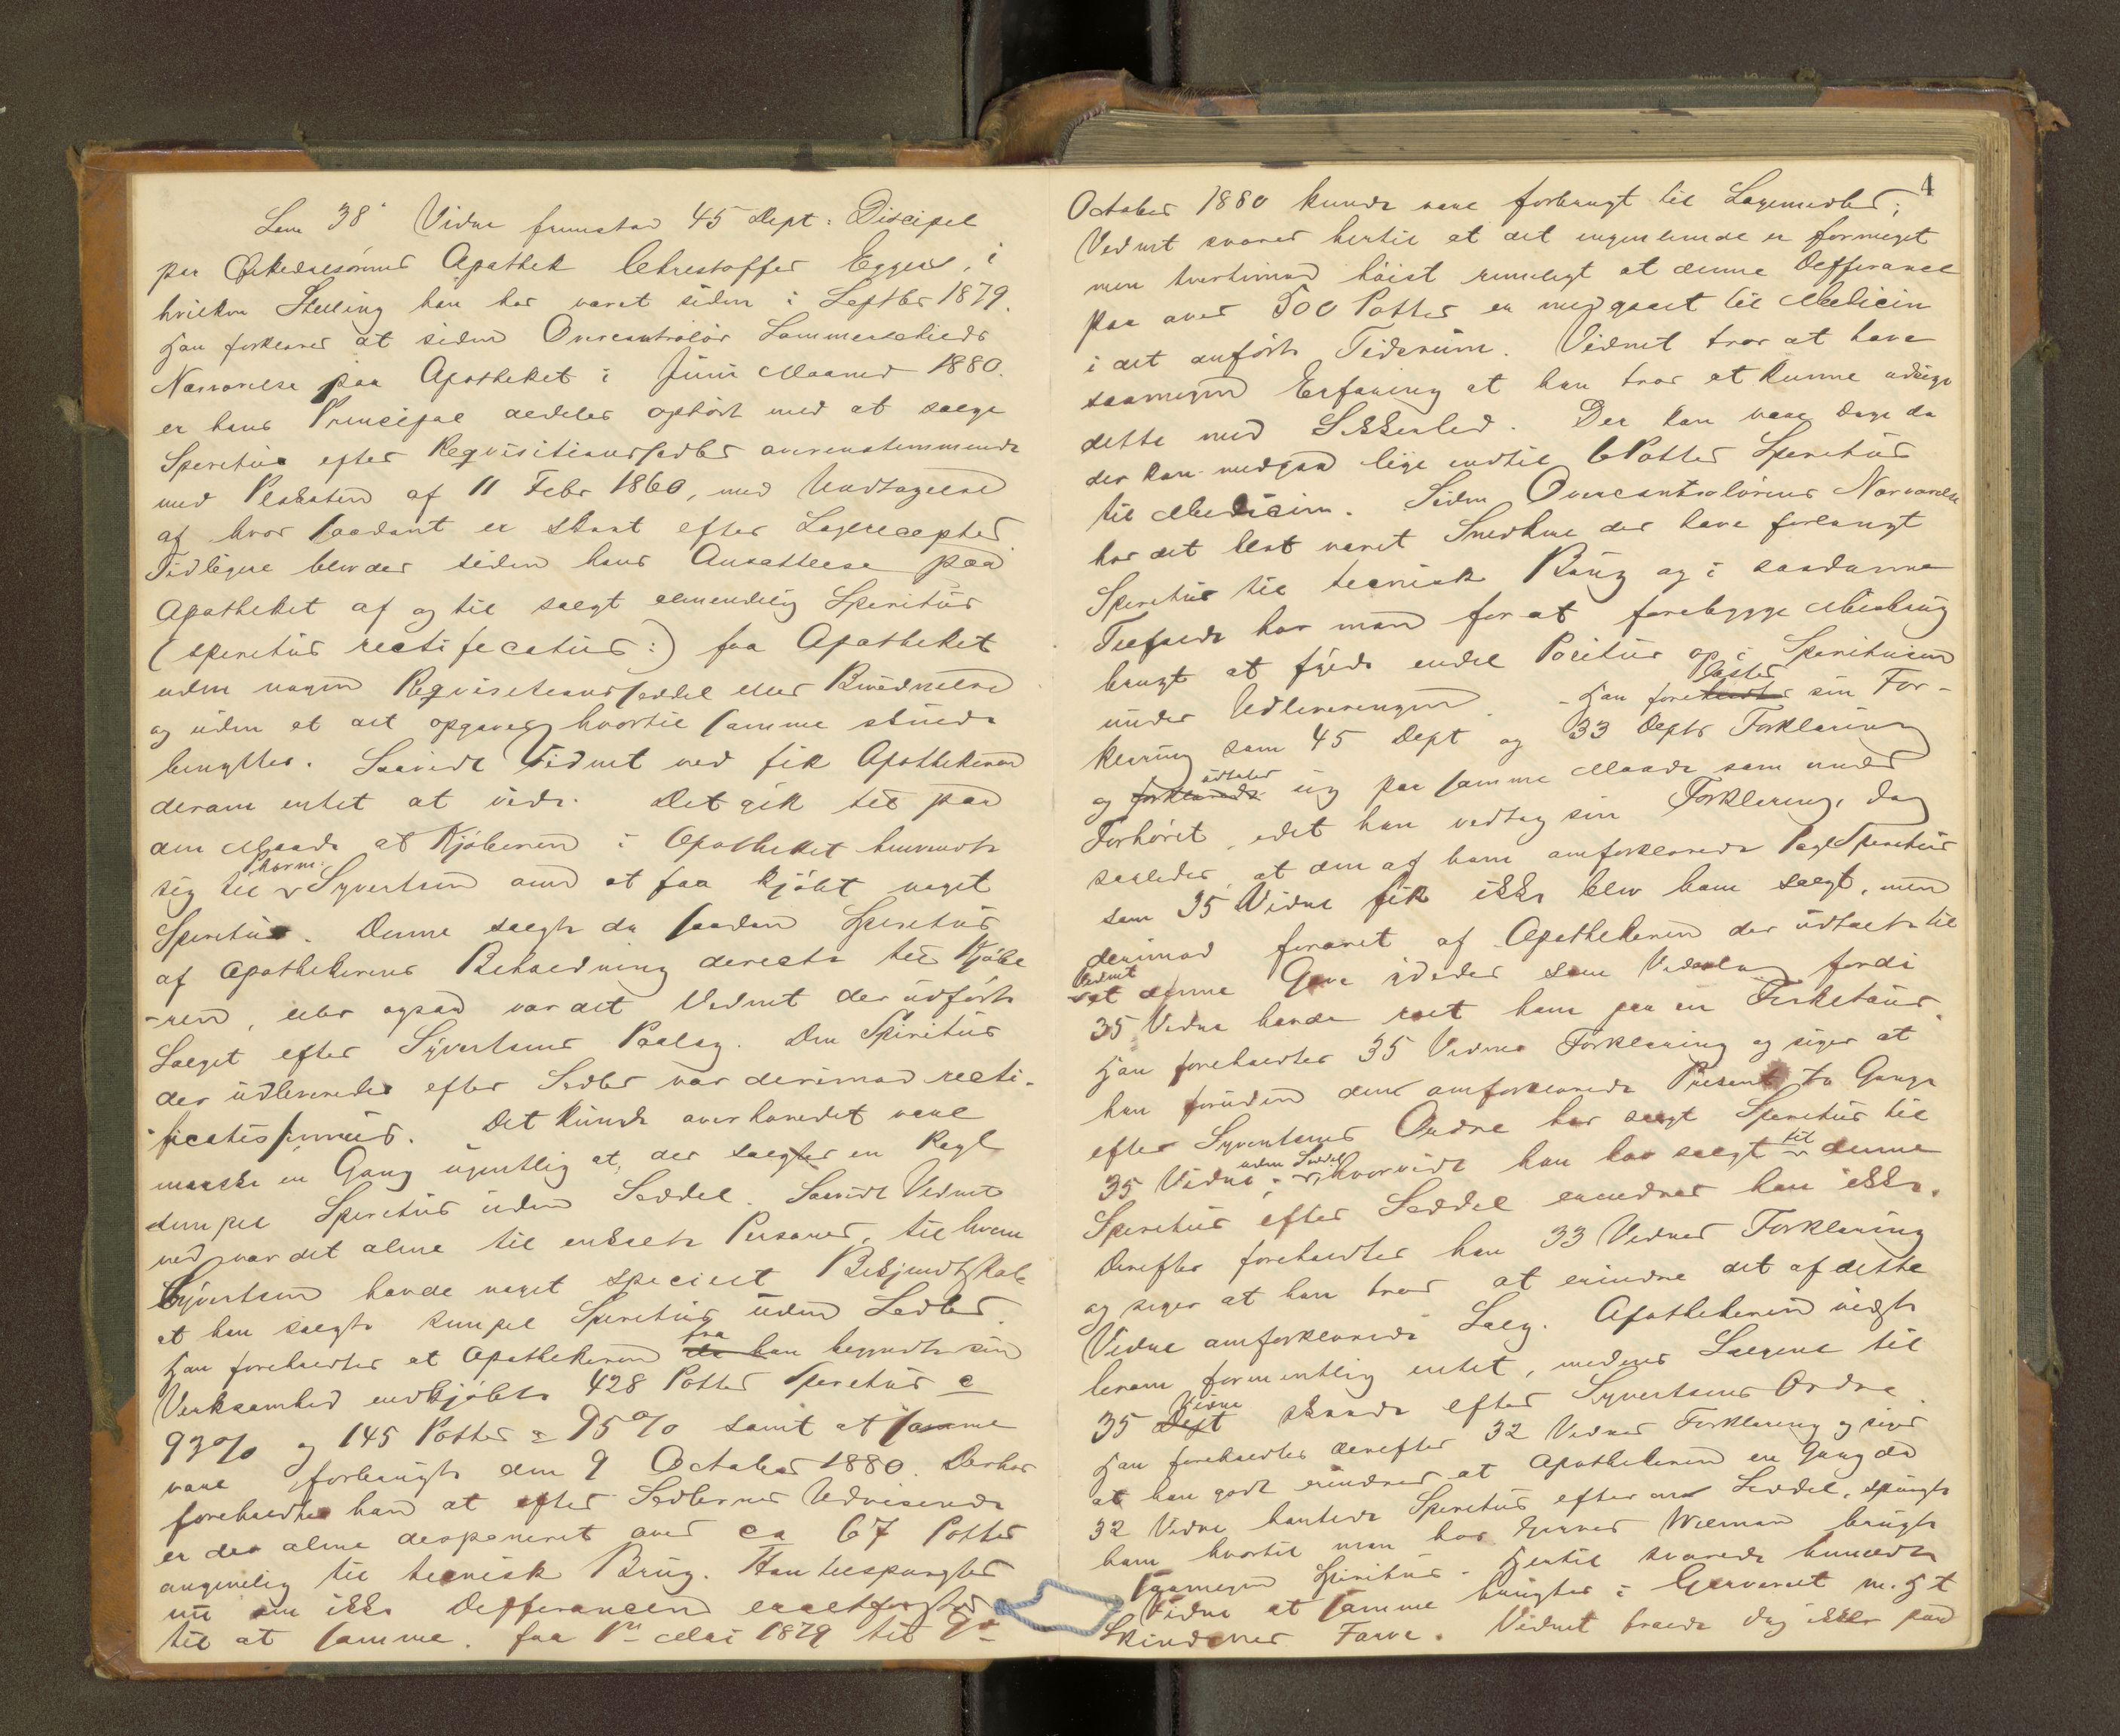 Som 38' Vidne fremstod 45 Dept: Discipel
paa Apothek Christoffer Eggen, i
hvilken Stilling han har været siden i Septbr 1879.
Han forklarer at siden Overcontrolör Sommerschields
Nærværelse paa Apotheket i Juni Maaned 1880.
er hans Principal aldeles ophørt med at sælge
Spiritus efter Reqvisitionssedler overensstemmende
med Plakaten af 11 Febr 1860, med Undtagelse
af hvor saadant er skeet efter Lægerecepter
Tidligere blev der siden hans Ansættelse paa
Apotheket af og til solgt almindelig Spiritus
(spiritus rectificatus:) fra Apotheket
uden nogen Reqvisitionsseddel eller Bevidnelse
og uden at det opgaves hvortil samme skulde
benyttes. Saavidt Vidnet ved fik Apothekeren
derom intet at vide. Det gik til paa
den Maade at Kjøberen i Apotheket henvendte
sig til Pharm: Syvertsen om at faa kjøbt noget
Spiritus. Denne solgte da saadan Spiritus
af Apothekerens Beholdning directe til Kjøbe
-ren, eller ogsaa var det Vidnet der udførte
Salget efter Syvertsens Paalæg. Den Spiritus
der udleveredes efter Sedler var derimod recti-
ficatissimus. Det kunde overhovedet være
maaske en Gang ugentlig at der solgtes en Pægl
simpel Spiritus uden Seddel. Saavidt Vidnet
ved var det alene til enkelte Personer, til hvem
Syvertsen havde noget specielt Bekjendtskab
at han solgte simpel Spiritus uden Sedler.
Han foreholdtes at Apothekeren fra da han begyndte sin
Virksomhed indkjøbte 428 Potter Spiritus a
93% og 145 Potter a 95% samt at samme
vare forbrugte den 9 October 1880. Derhos
foreholdtes han at efter Sedlernes Udvisende
er der alene disponeret over ca 67 Potter
angivelig til teknisk Brug. Han tilspurgtes
nu om ikke Differancen
til at samme. fra 1ste Mai 1879 til 9de
4
October 1880 kunde være forbrugt til Lægemidler;
Vidnet svarer hertil at det ingenlunde er formeget
men tvertimod høist rimeligt at denne Differance
paa over 500 Potter er medgaaet til Medicin
i det anførte Tidsrum. Vidnet tror at have
saamegen Erfaring at han tror at kunne udsige
dette med Sikkerhed. Der kan være Dage da
der kan medgaa lige indtil 6 Potter Spiritus
til Medicin. Siden Overcontrolørens Nærværelse
har det blot været Snedkere der have forlangt
Spiritus til teknisk Brug og i saadanne
Tilfælde har man for at forebygge Misbrug
brugt at fyde endel Politur op i Spiritusen
under Udleveringen. - Han forelæstes sin For-
klaring som 45 Dept og 33 Depts Forklaring
og forklarede udtaler sig paa samme Maade som under
Forhøret, idet han vedtog sin Forklaring, dog
saaledes, at den af ham omforklarede Pægl Spiritus
som 35 Vidne fik ikke blev ham solgt, men
derimod foræret af Apothekeren der udtalte til
Vidnet at denne Gave ydedes som Vederlag fordi
35 Vidne havde roet ham paa en Fisketour.
Han foreholdtes 35 Vidnes Forklaring og siger at
han foruden den omforklarede Present to Gange
efter Syvertsens Ordre har solgt Spiritus til
35 Vidne uden Seddel; hvorvidt han har solgt til denne
Spiritus efter Seddel erindrer han ikke.
Derefter foreholdtes han 33 Vidnes Forklaring
og siger at han tror at erindre det af dette
Vidne omforklarede Salg. Apothekeren vidste
herom formentlig intet, medens Salgene til
35 Dept Vidne skeede efter Syvertsens Ordre.
Han foreholdtes derefter 32 Vidnes Forklaring og siger
at han godt erindrer at Apothekeren en Gang da
32 Vidne hentede Spiritus efter en Seddel, spurgte
ham hvortil man hos Garver Wieman brugte
saamegen Spiritus. Hertil svarede bemeldte
Vidne at samme brugtes i Garveriet m. H t
Skindenes Farve. Vidnet troede dog ikke paa